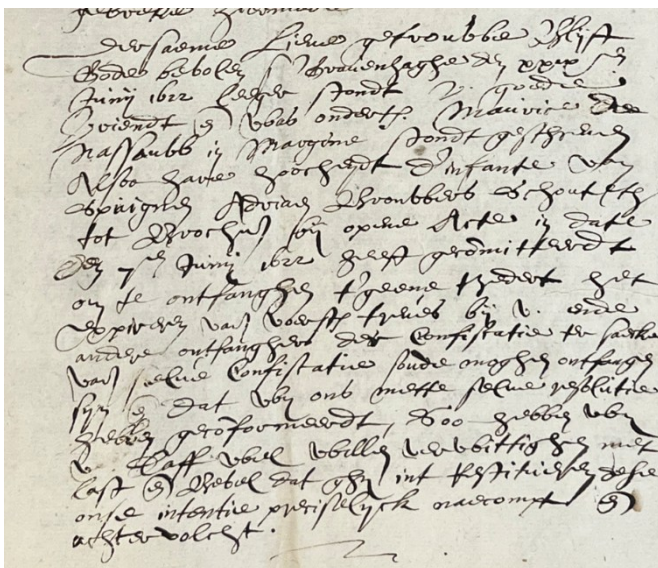 dersaeme Lieve getroubbe Blijft
Gode bevolen s Gravenhaghe den xxix en
Junij 1622 leeger stondt v. goede
Vriendt en was ondert. Maurice de
Nassaubb in Margine stondt geschreven
Alsoo hare hoocheydt d'infante van
Spaignen Adriaen Broubbers Schouteth
tot Brochus bij opene Acte in date
den 7en Junij 1622 heeft gecommitteerdt
om te ontfanghen t'geene tzedert het
expireren van voersz. treves bij v. ende
andere ontfanghers der Confiscatie ter saecke
van selve Confiscatie soude moghen ontfangen
sijn en dat wy ons mette selve resolutie
hebben geconformeerdt, Soo hebben wy
v. Last wel willen verwittighen met
last en Bevel dat ghij int restitueren deese
onse intentie preciselyck naecompt en
achtervolcht.